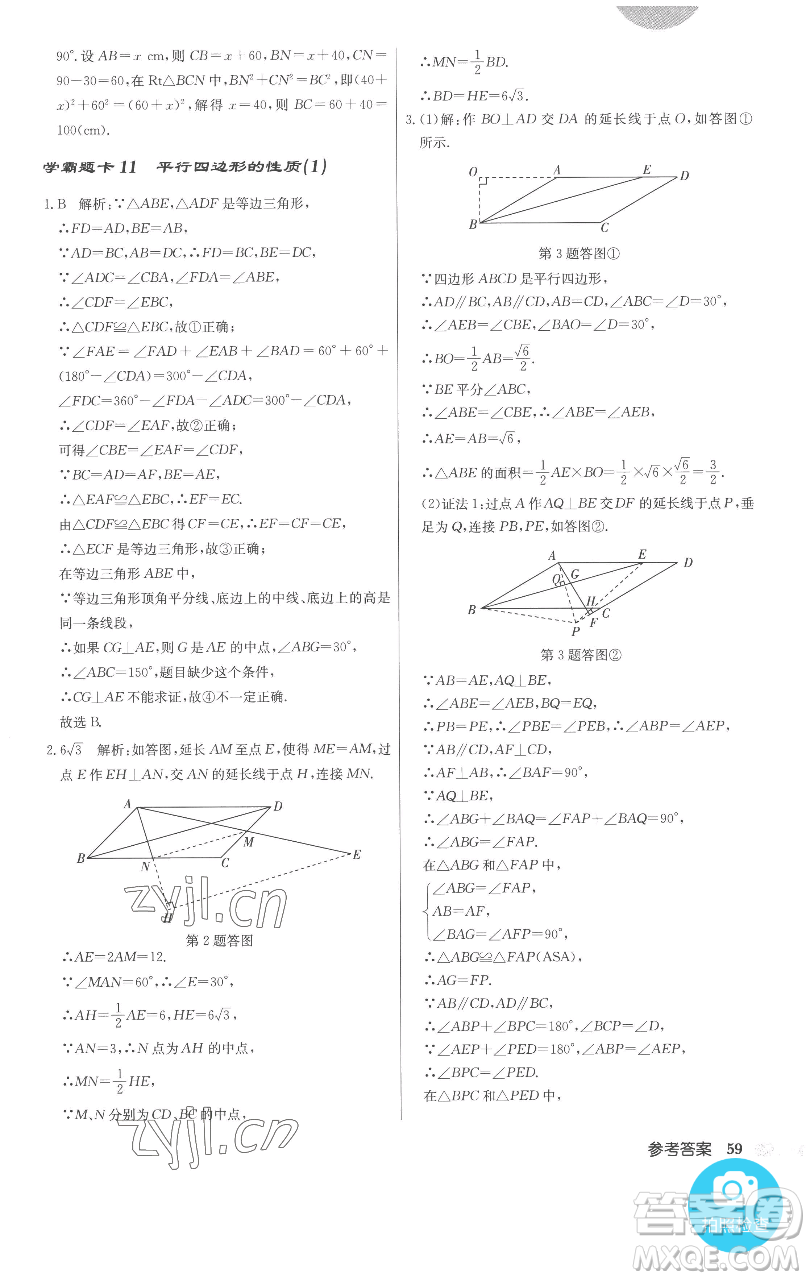 90°. 设 AB=x cm,则 CB=x+60,BN=x+40,CN=
90-30=60,在 Rt△BCN 中,BN²+CN²=BC²,即(40+
x)²+60²=(60+x)²,解得 x=40,则 BC=60+40=
100(cm).
学霸题卡 11 平行四边形的性质(1)
1. B 解析:∵△ABE,△ADF 是等边三角形,
∴FD=AD,BE=AB,
∵AD=BC,AB=DC,∴FD=BC,BE=DC,
∵∠ADC=∠CBA,∠FDA=∠EBA,
∴∠CDF=∠EBC,
∴△CDF≌△EBC,故①正确;
∵∠FAE=∠FAD+∠EAB+∠BAD=60°+60°+
(180°-∠CDA)=300°-∠CDA,
∠FDC=360°-∠FDA-∠CDA=300°-∠CDA,
∴∠CDF=∠EAF,故②正确;
可得∠CBE=∠EAF=∠CDF,
∵BC=AD=AF,BE=AE,
∴△EAF≌△EBC,∴EF=EC.
由△CDF≌△EBC 得 CF=CE,∴EF=CF=CE,
∴△ECF 是等边三角形,故③正确;
在等边三角形 ABE 中,
∵等边三角形顶角平分线、底边上的中线、底边上的高是
同一条线段,
∴如果 CG⊥AE,则 G 是 AE 的中点,∠ABG=30°,
∴∠ABC=150°,题目缺少这个条件,
∴CG⊥AE 不能求证,故④不一定正确.
故选 B.
2. 6√3 解析:如答图,延长 AM 至点 E,使得 ME=AM,过
点 E 作 EH⊥AN,交 AN 的延长线于点 H,连接 MN.
A D
M
B N C E
H
第 2 题答图
∴AE=2AM=12.
∵∠MAN=60°,∴∠E=30°,
∴AH=1/2AE=6,HE=6√3,
∵AN=3,∴N 点为 AH 的中点,
∴MN=1/2HE,
∵M、N 分别为 CD、BC 的中点,
∴MN=1/2BD.
∴BD=HE=6√3.
3. (1)解:作 BO⊥AD 交 DA 的延长线于点 O,如答图①
所示.
O A E D
B C
第 3 题答图①
∵四边形 ABCD 是平行四边形,
∴AD∥BC,AB∥CD,AB=CD,∠ABC=∠D=30°,
∴∠AEB=∠CBE,∠BAO=∠D=30°,
∴BO=1/2AB=√6/2.
∵BE 平分∠ABC,
∴∠ABE=∠CBE,∴∠ABE=∠AEB,
∴AE=AB=√6,
∴△ABE 的面积=1/2AE×BO=1/2×√6×√6/2=3/2.
(2)证法 1:过点 A 作 AQ⊥BE 交 DF 的延长线于点 P,垂
足为 Q,连接 PB,PE,如答图②.
A E D
Q G
B H C
P F
第 3 题答图②
∵AB=AE,AQ⊥BE,
∴∠ABE=∠AEB,BQ=EQ,
∴PB=PE,∴∠PBE=∠PEB,∴∠ABP=∠AEP,
∵AB∥CD,AF⊥CD,
∴AF⊥AB,∴∠BAF=90°,
∵AQ⊥BE,
∴∠ABG+∠BAQ=∠FAP+∠BAQ=90°,
∴∠ABG=∠FAP.
在△ABG 和△FAP 中,
{∠ABG=∠FAP,
AB=AF,
∠BAG=∠AFP=90°,
∴△ABG≌△FAP(ASA),
∴AG=FP.
∵AB∥CD,AD∥BC,
∴∠ABP+∠BPC=180°,∠BCP=∠D,
∵∠AEP+∠PED=180°,
∴∠BPC=∠PED.
在△BPC 和△PED 中,
参考答案 59
拍照检查
答案卷
MXQE.COM
zyjl.cn
zyjl.cn